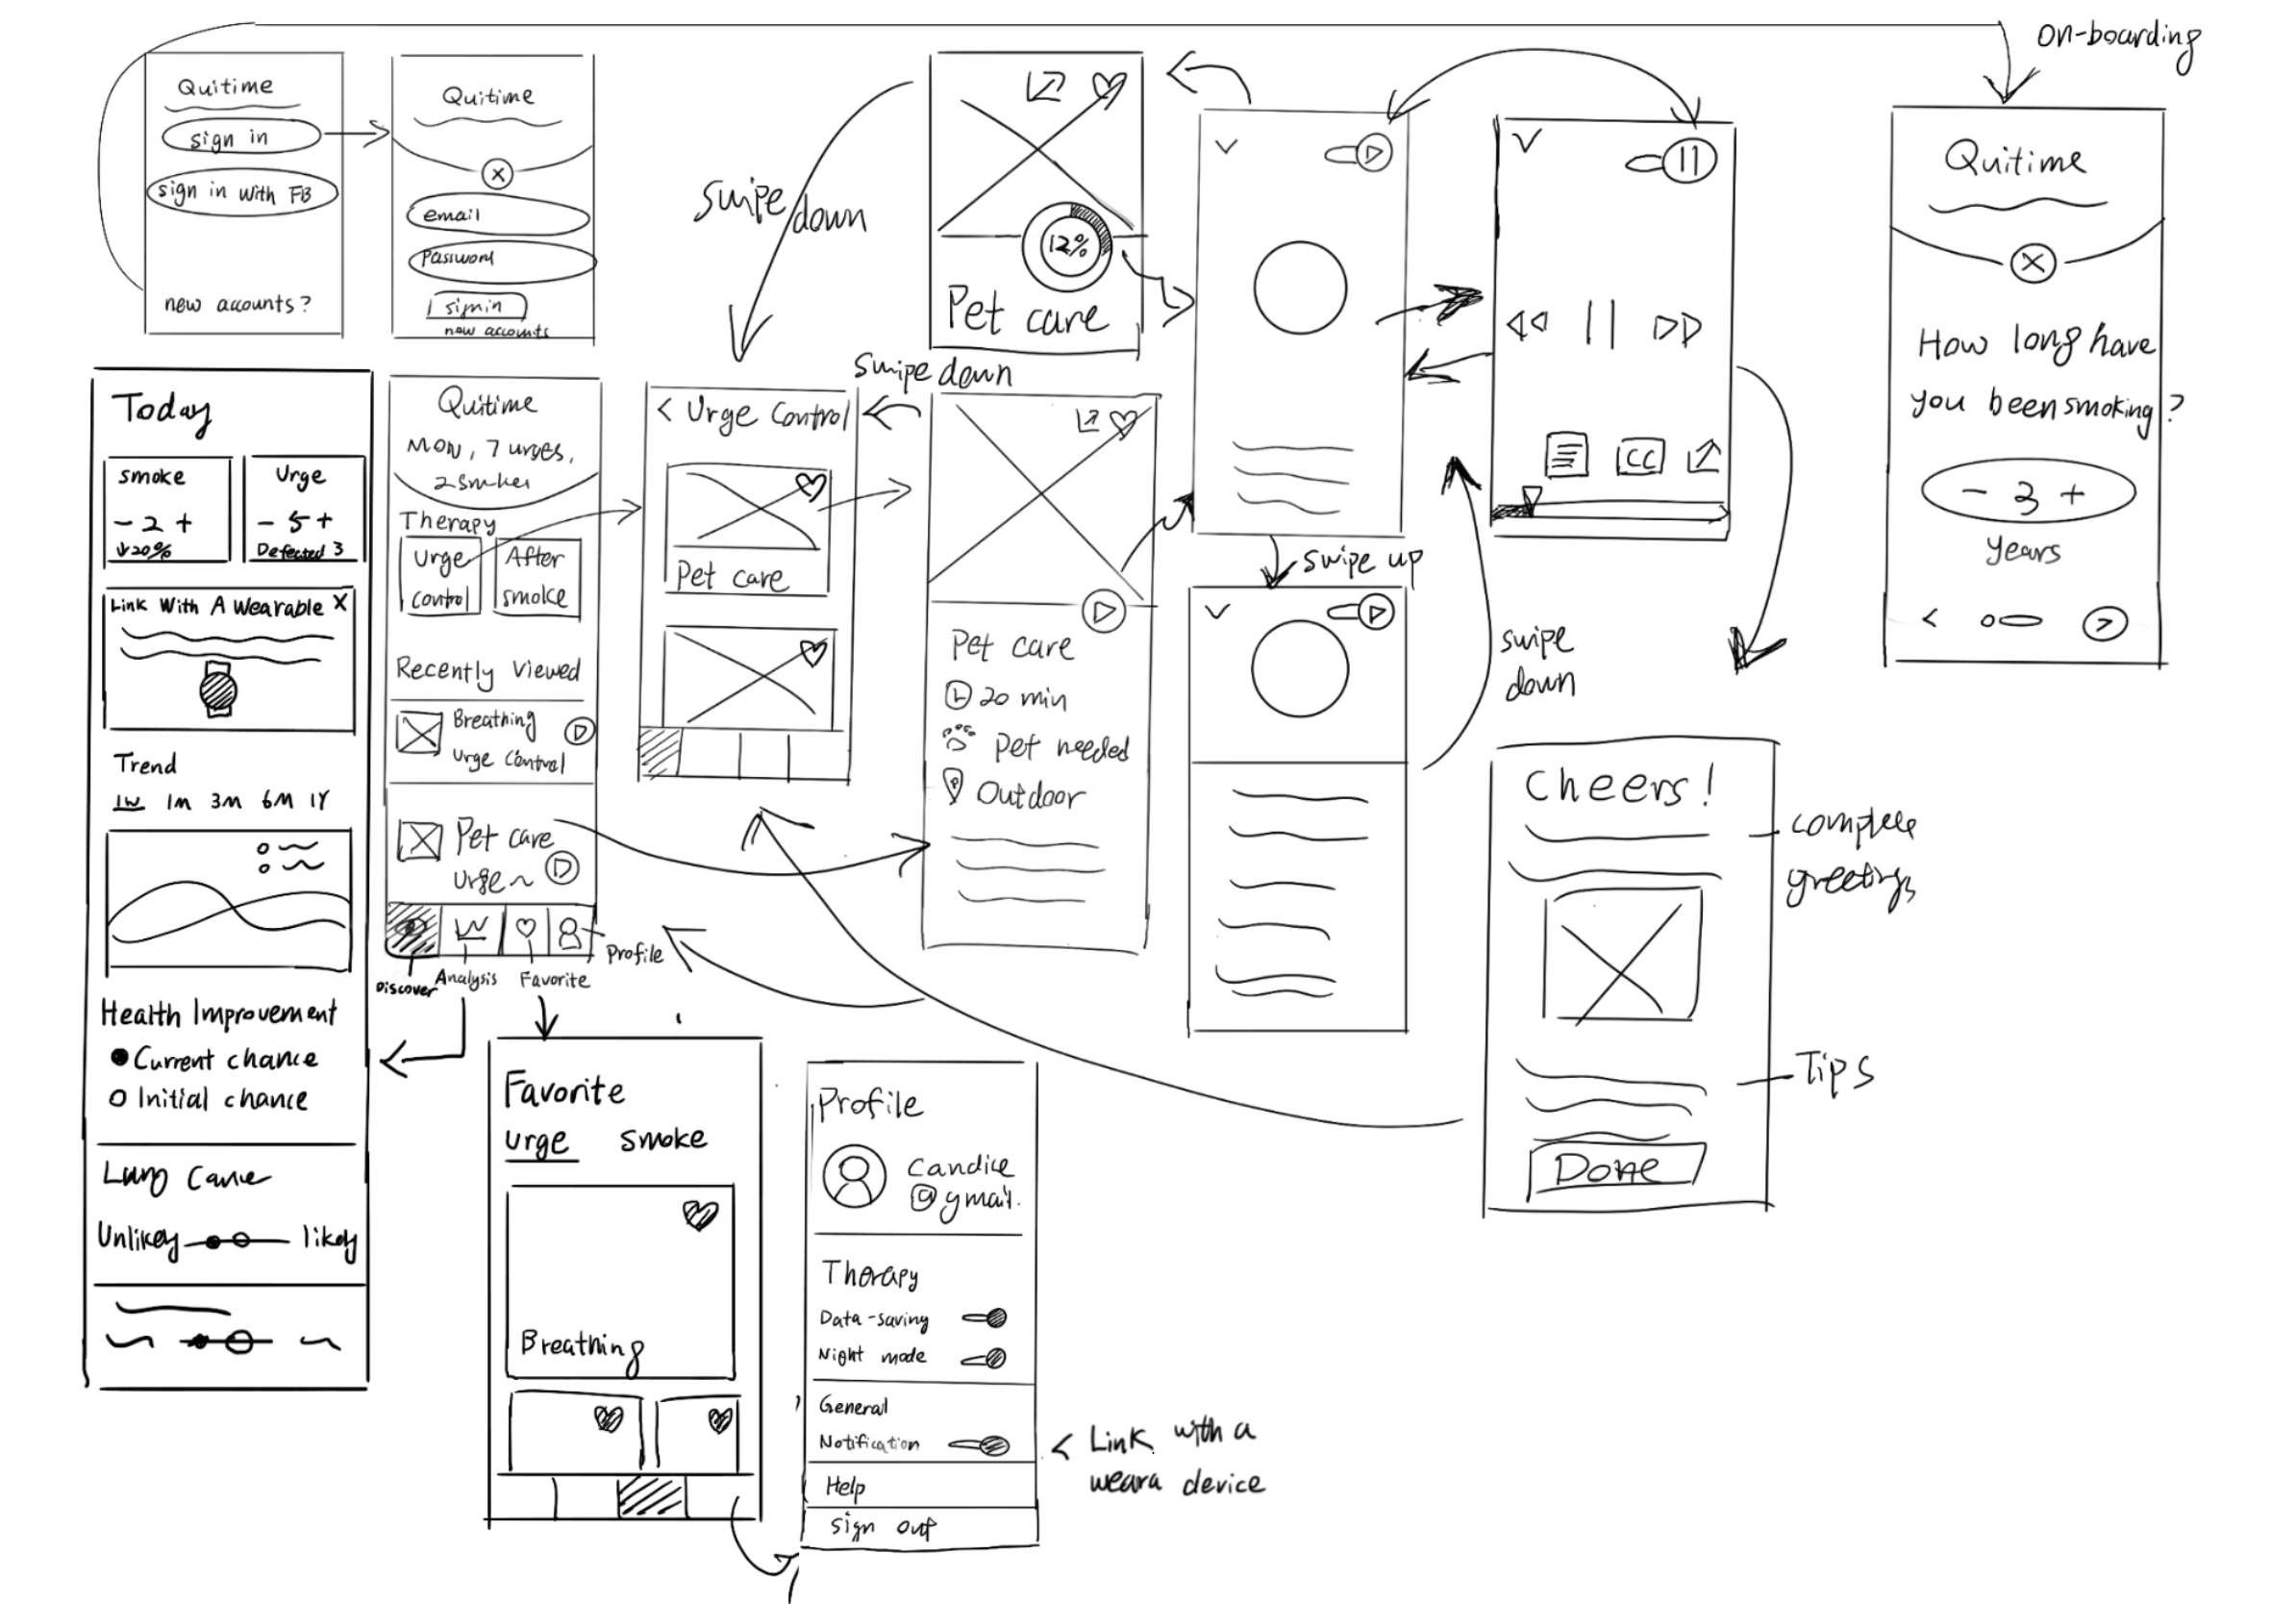 On-boarding
Quitime
sign in
sign in with FB
new accounts?
Quitime
email
Password
new accounts
swipe down
12%
Pet care
Quitime
How long have
you been smoking?
- 3 +
Years
<
>
Today
smoke
- 2 +
↓20%
Urge
- 5 +
3
Link With A Wearable X
Trend
1W 1M 3M 6M 1Y
Health Improvement
Current chance
Initial chance
Lung
Unlikely likely
Quitime
MON, 7 urges,
2
Therapy
Urge
control
After
smoke
Recently Viewed
Breathing
Urge Control
Pet care
urge ~
Discover
Analysis
Favorite
Profile
< Urge Control
Pet care
swipe down
Pet care
20 min
Pet needed
Outdoor
swipe up
swipe
down
CC
Cheers!
complete
greetings
Tips
Done
Favorite
urge smoke
Breathing
Profile
Candice
@gmail.
Therapy
Data-saving
Night mode
General
Notification
Help
Sign out
< Link with a
weara device